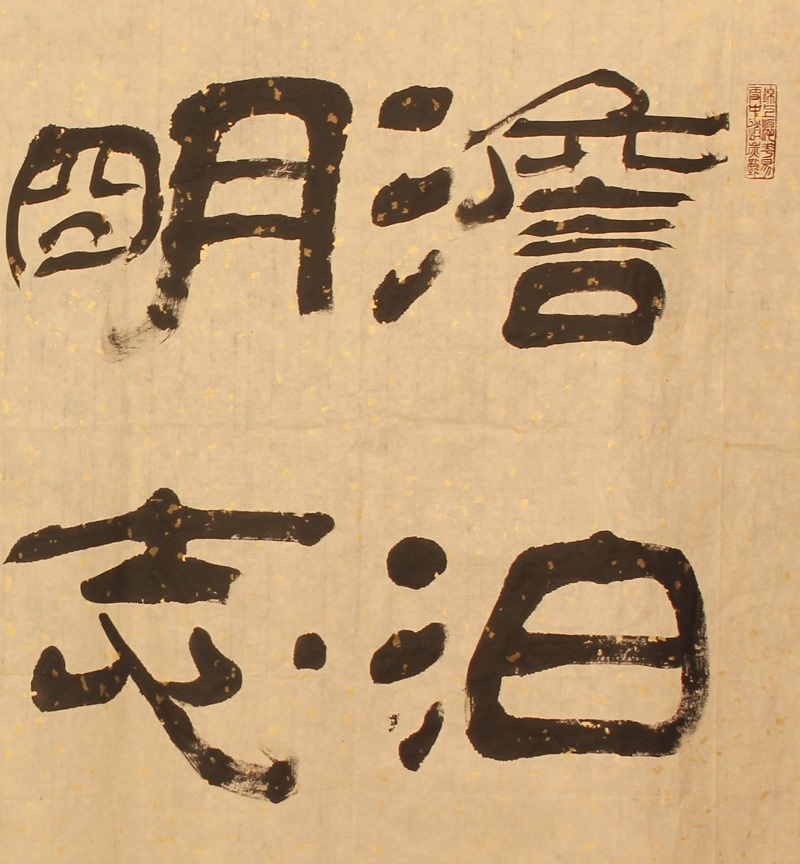 澹泊
明志